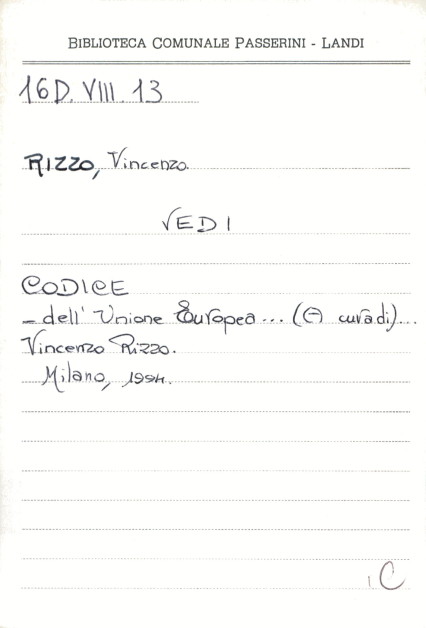 BIBLIOTECA COMUNALE PASSERINI - LANDI
16D. VIII. 13
RIZZO, Vincenzo.
VEDI
CODICE
- dell' Unione Europea... (A cura di)...
Vincenzo Rizzo.
Milano, 1994.
C